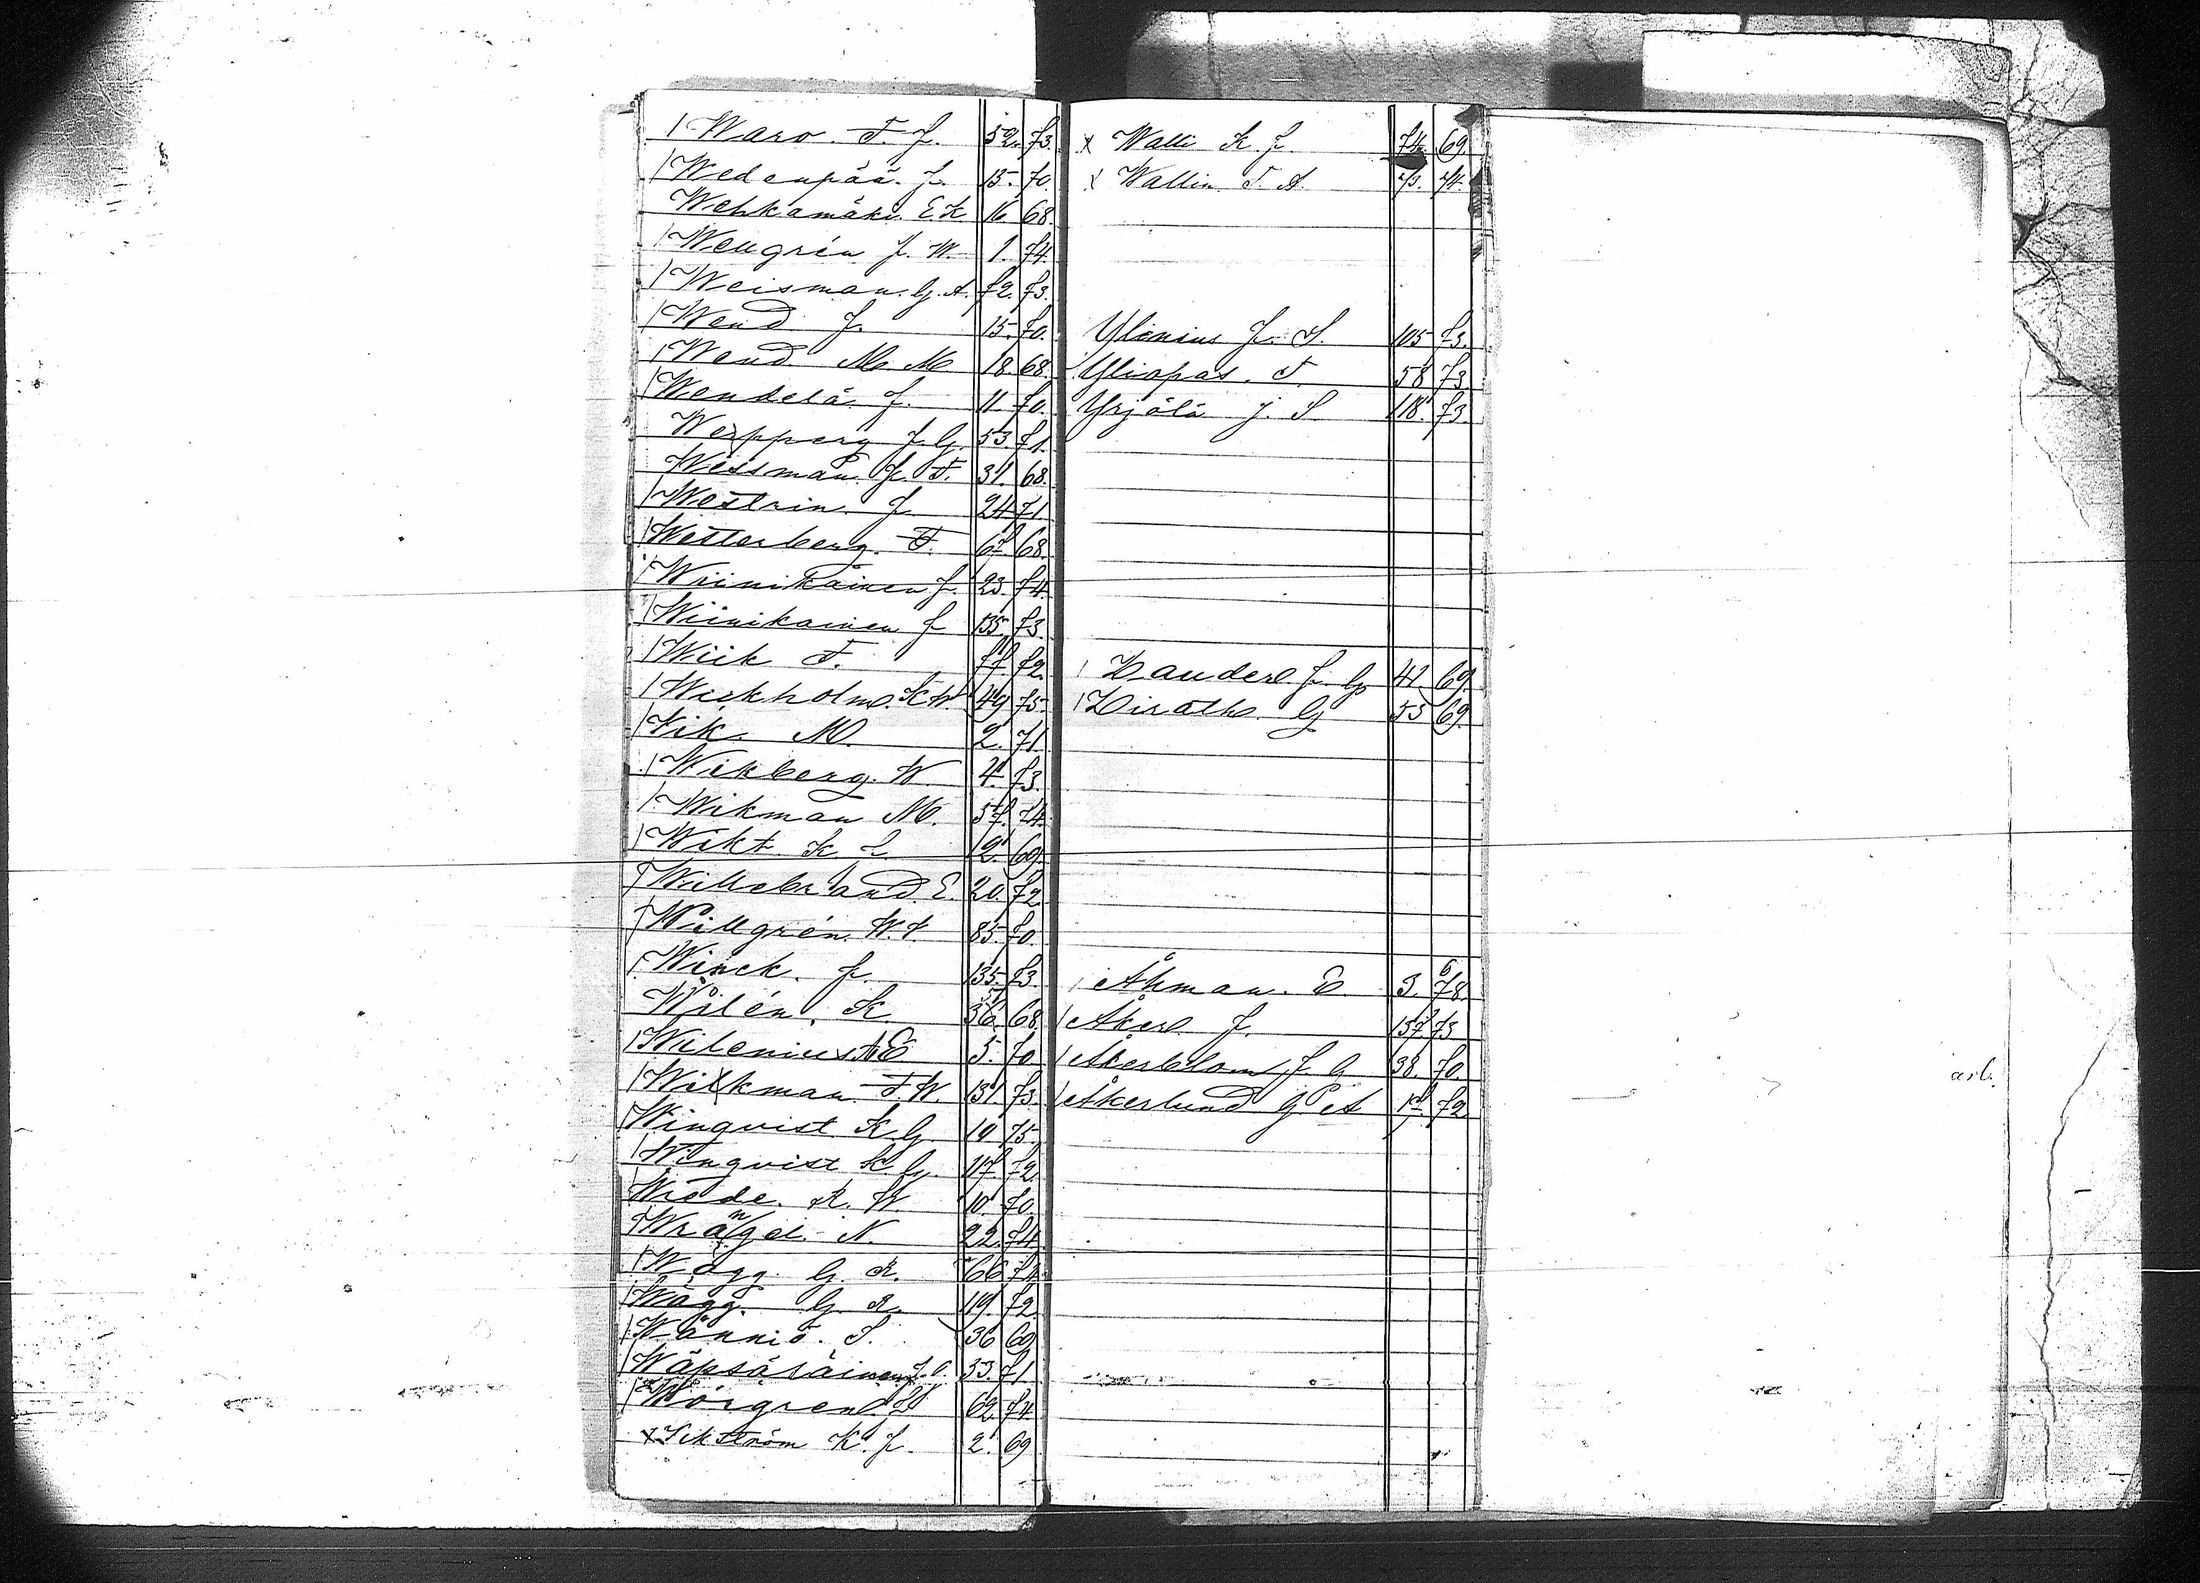 Waro. F. J. 52. 73.
Wedenpää. J. 15. 70.
Wehkamäki. E. K 16 68.
Wellgrén J. W. 1. 74.
Weisman. G. A. 72. 73.
Wend J. 15. 70.
Wend. M. M 18. 68.
Wendelä. J. 11. 70.
J. G. 53. 71.
Wessman J. F. 31. 68.
Westrin. J. 24 71.
Wetterberg. F. 67 68.
Wiinikäinen J. 23. 74.
Wiinikainen J 135. 73.
Wiik F. 77. 72.
Wiekholm. K W. 49 75.
Vik. M. 2. 71.
Wikberg. W 4. 73.
Wikman M. 57. 74.
Wikt K J. 12. 69.
Willebrand. E. 20. 72.
Willgrén. W. 85. 70.
Winck. J. 135. 73.
Wilén. K. 36. 68.
Wilenius A E 5. 70
Wilkman F. W. 131. 73.
Winqvist K G. 19 75.
Winqvist K. G. 117. 72.
Wrede. R. W. 10. 70.
Wrangel. N. 22. 74.
Wägg. G. R. 66 74.
Wägg. G. R. 119. 72.
Wänniö. S. 36 69
Wäpsäräinen 33. 71.
Wörgren 62. 74.
x Sikström K. J. 2. 69
x Walli K. J. 74. 69.
x Wallin F. A. 73. 74.
Ylenius J. S. 105 73.
Yliopas. F. 58 73.
Yrjälä j. S 118. 73.
Zander. J. G. 41. 69.
Zirath. G 55 69.
Åhman. E. 3. 78.
Åker J. 137. 73
Åkerblom J. G 38. 70.
Åkerlund G A 17. 72
arb.